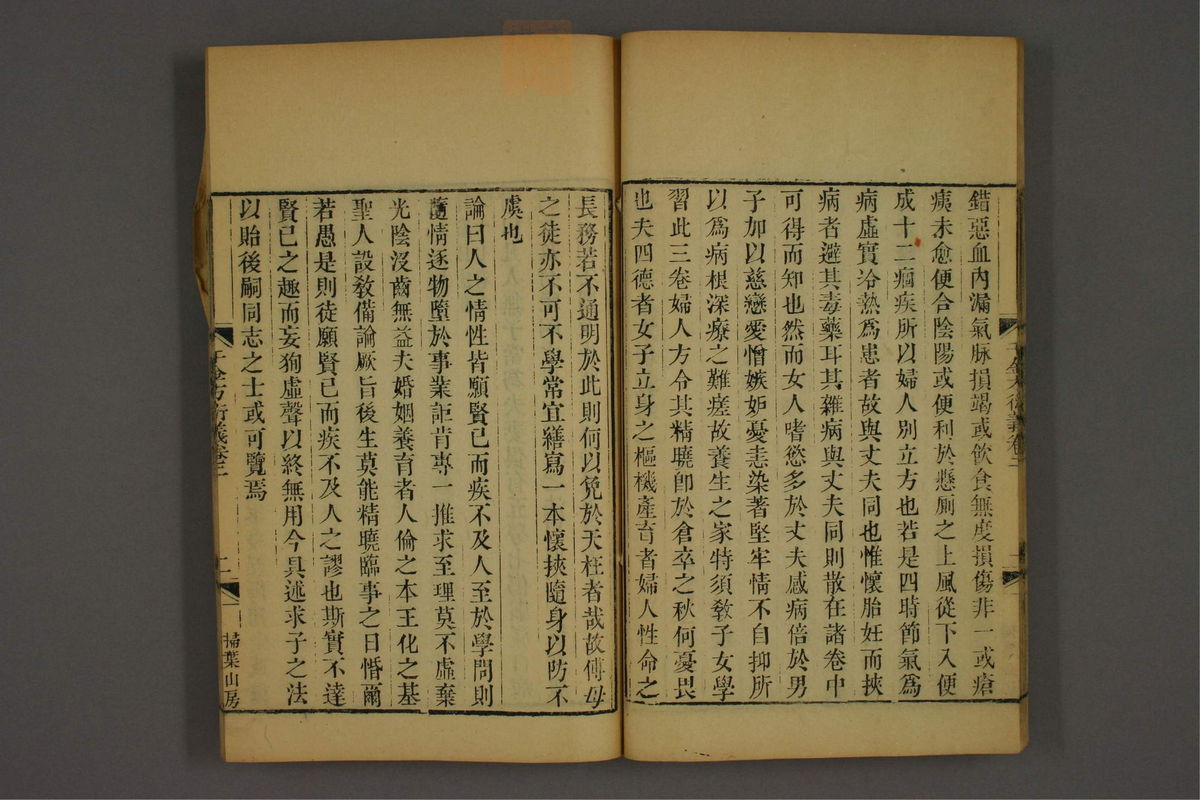 錯惡血內漏氣脉損竭或飲食無度損傷非一或瘡
痍未愈便合陰陽或便利於懸厠之上風從下入便
成十二痼疾所以婦人別立方也若是四時節氣爲
病虛實冷熱爲患者故與丈夫同也惟懷胎妊而挾
病者避其毒藥耳其雜病與丈夫同則散在諸卷中
可得而知也然而女人嗜慾多於丈夫感病倍於男
子加以慈戀愛憎嫉妒憂恚染著堅牢情不自抑所
以爲病根深療之難瘥故養生之家特須敎子女學
習此三卷婦人方令其精曉卽於倉卒之秋何憂畏
也夫四德者女子立身之樞機產育者婦人性命之
千金方衍義卷二
二
長務若不通明於此則何以免於夭枉者哉故傅母
之徒亦不可不學常宜繕寫一本懷挾隨身以防不
虞也
論曰人之情性皆願賢己而疾不及人至於學問則
隨情逐物墮於事業詎肯專一推求至理莫不虛棄
光陰沒齒無益夫婚姻養育者人倫之本王化之基
聖人設敎備論厥旨後生莫能精曉臨事之日惛爾
若愚是則徒願賢己而疾不及人之謬也斯實不達
賢己之趣而妄狥虛聲以終無用今具述求子之法
以貽後嗣同志之士或可覽焉
千金方衍義卷二
二
掃葉山房